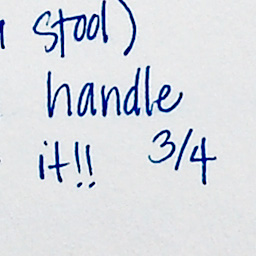 stool)
handle
it!! 3/4